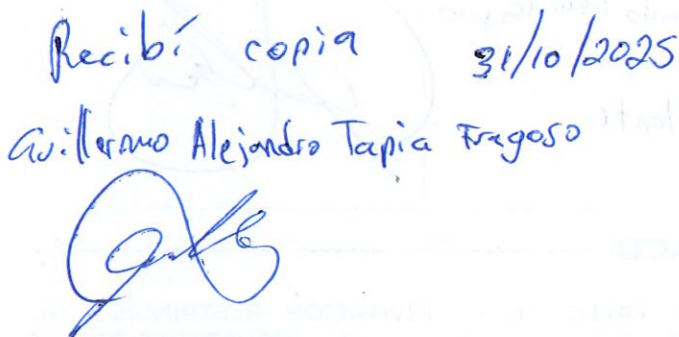 Recibí copia 31/10/2025
Guillermo Alejandro Tapia Fragoso